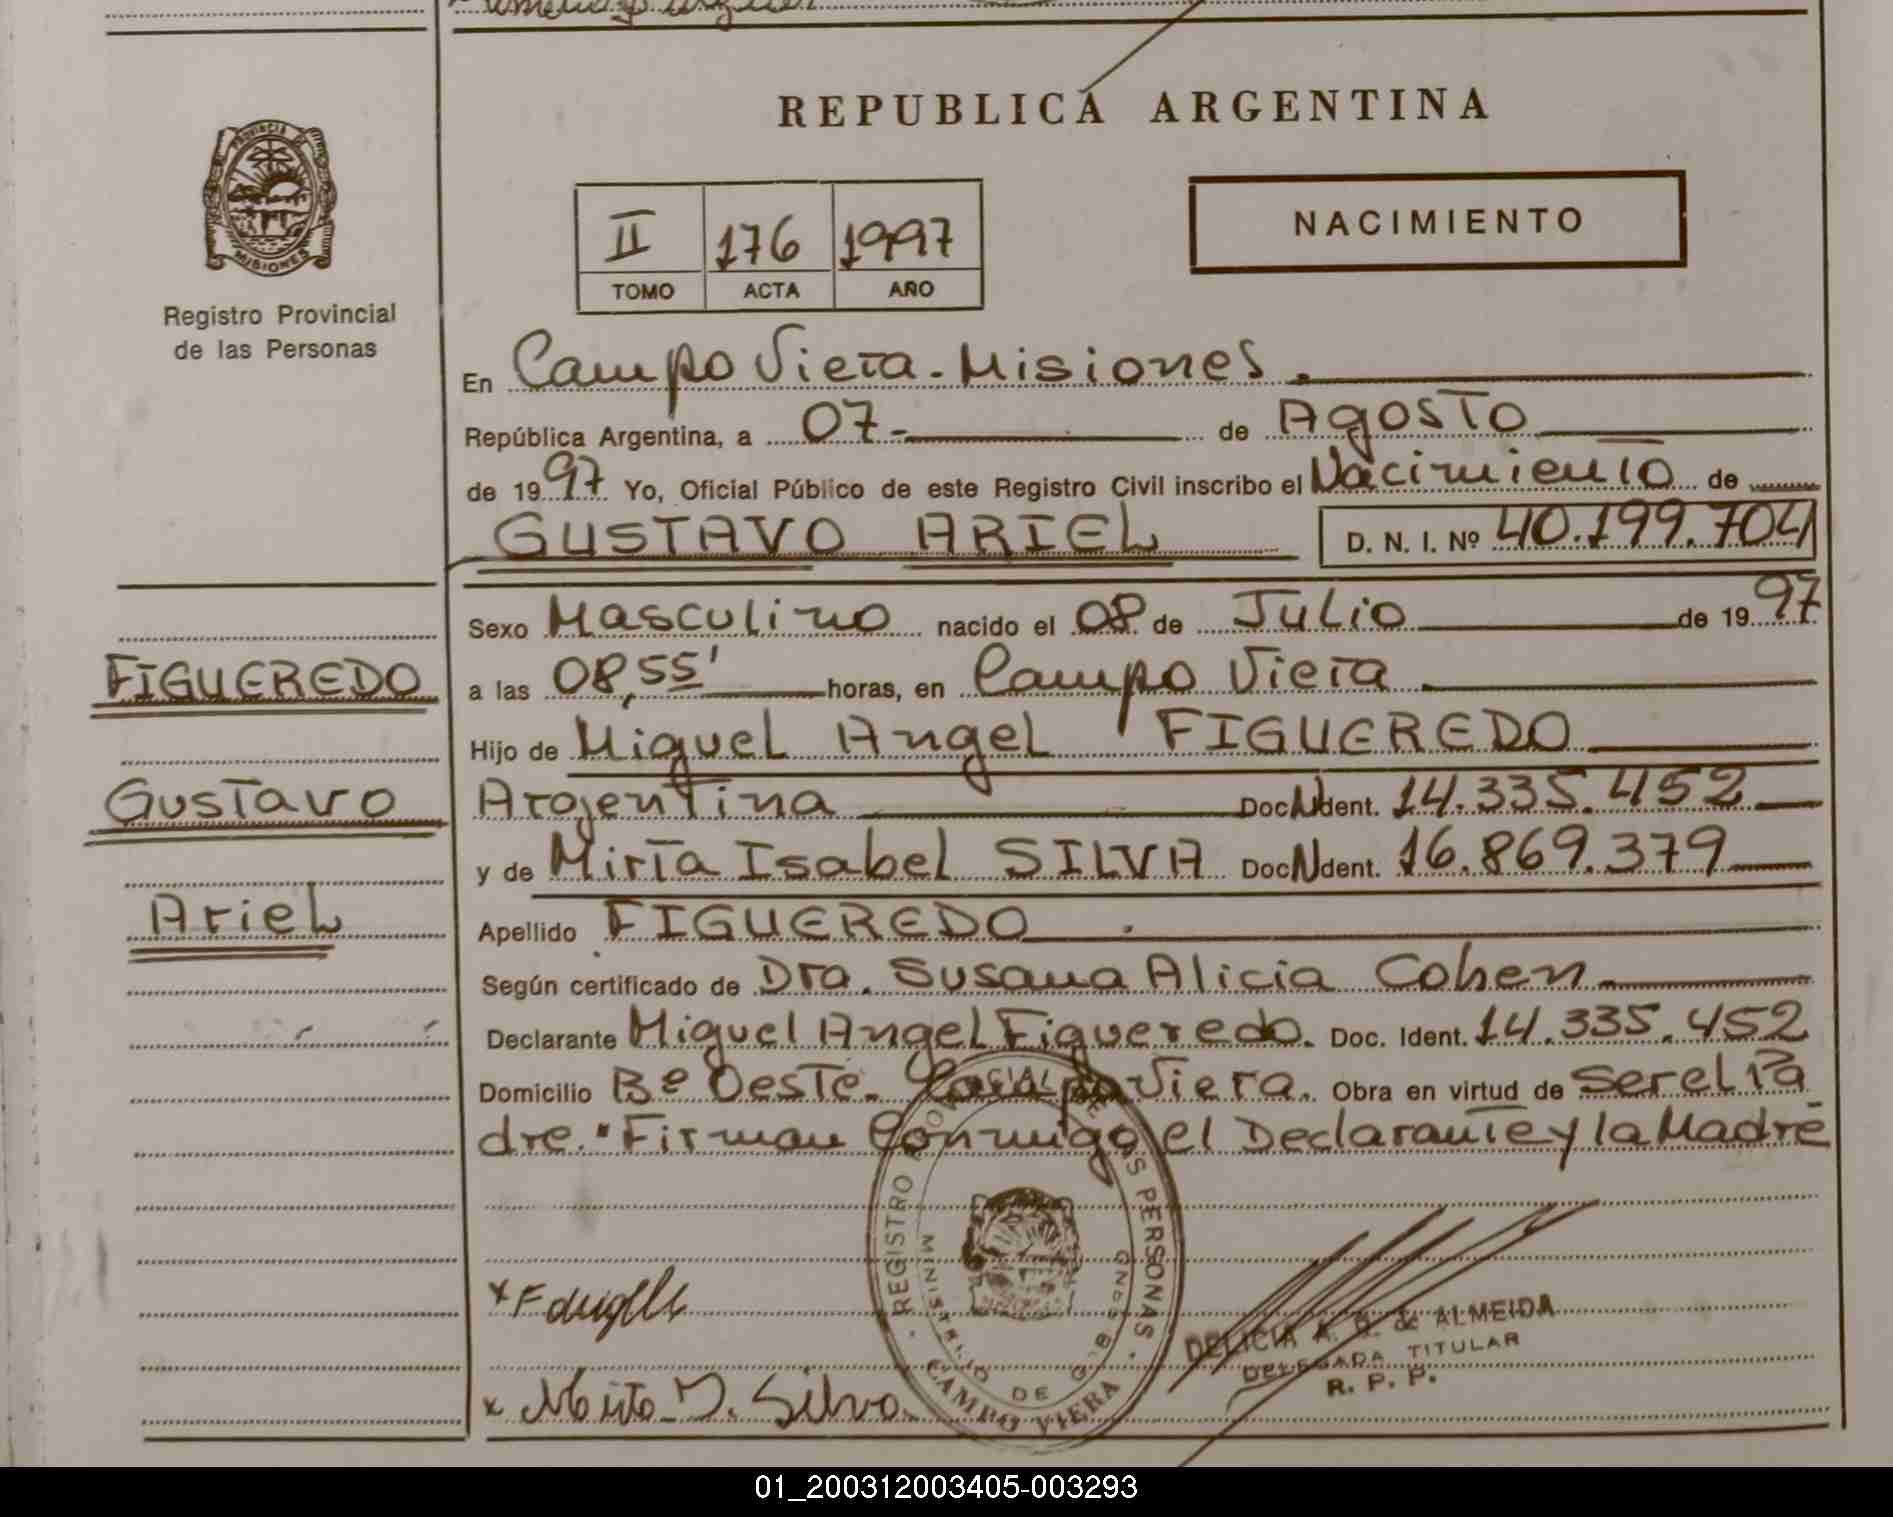 REPUBLICA ARGENTINA
PROVINCIA DE
MISIONES
Registro Provincial
de las Personas
II 176 1997
TOMO ACTA AÑO
NACIMIENTO
En Campo Viera - Misiones.
República Argentina, a 07- de Agosto
de 1997 Yo, Oficial Público de este Registro Civil inscribo el Nacimiento de
GUSTAVO ARIEL D. N. I. Nº 40.199.704
Sexo Masculino nacido el 08 de Julio de 1997
a las 08,55' horas, en Campo Viera
Hijo de Miguel Angel FIGUEREDO
Argentina Doc N Ident. 14.335.452
y de Mirta Isabel SILVA Doc N Ident. 16.869.379
Apellido FIGUEREDO
Según certificado de Dra. Susana Alicia Cohen
Declarante Miguel Angel Figueredo. Doc. Ident. 14.335.452
Domicilio Bº Oeste - Campo Viera. Obra en virtud de ser el Pa
dre. Firman Conmigo el Declarante y la Madre
FIGUEREDO
Gustavo
Ariel
REGISTRO PROVINCIAL DE LAS PERSONAS
MINISTERIO DE GOB.
CAMPO VIERA
x Mirta I. Silva
DELICIA A. de ALMEIDA
DELEGADA TITULAR
R. P. P.
01_200312003405-003293